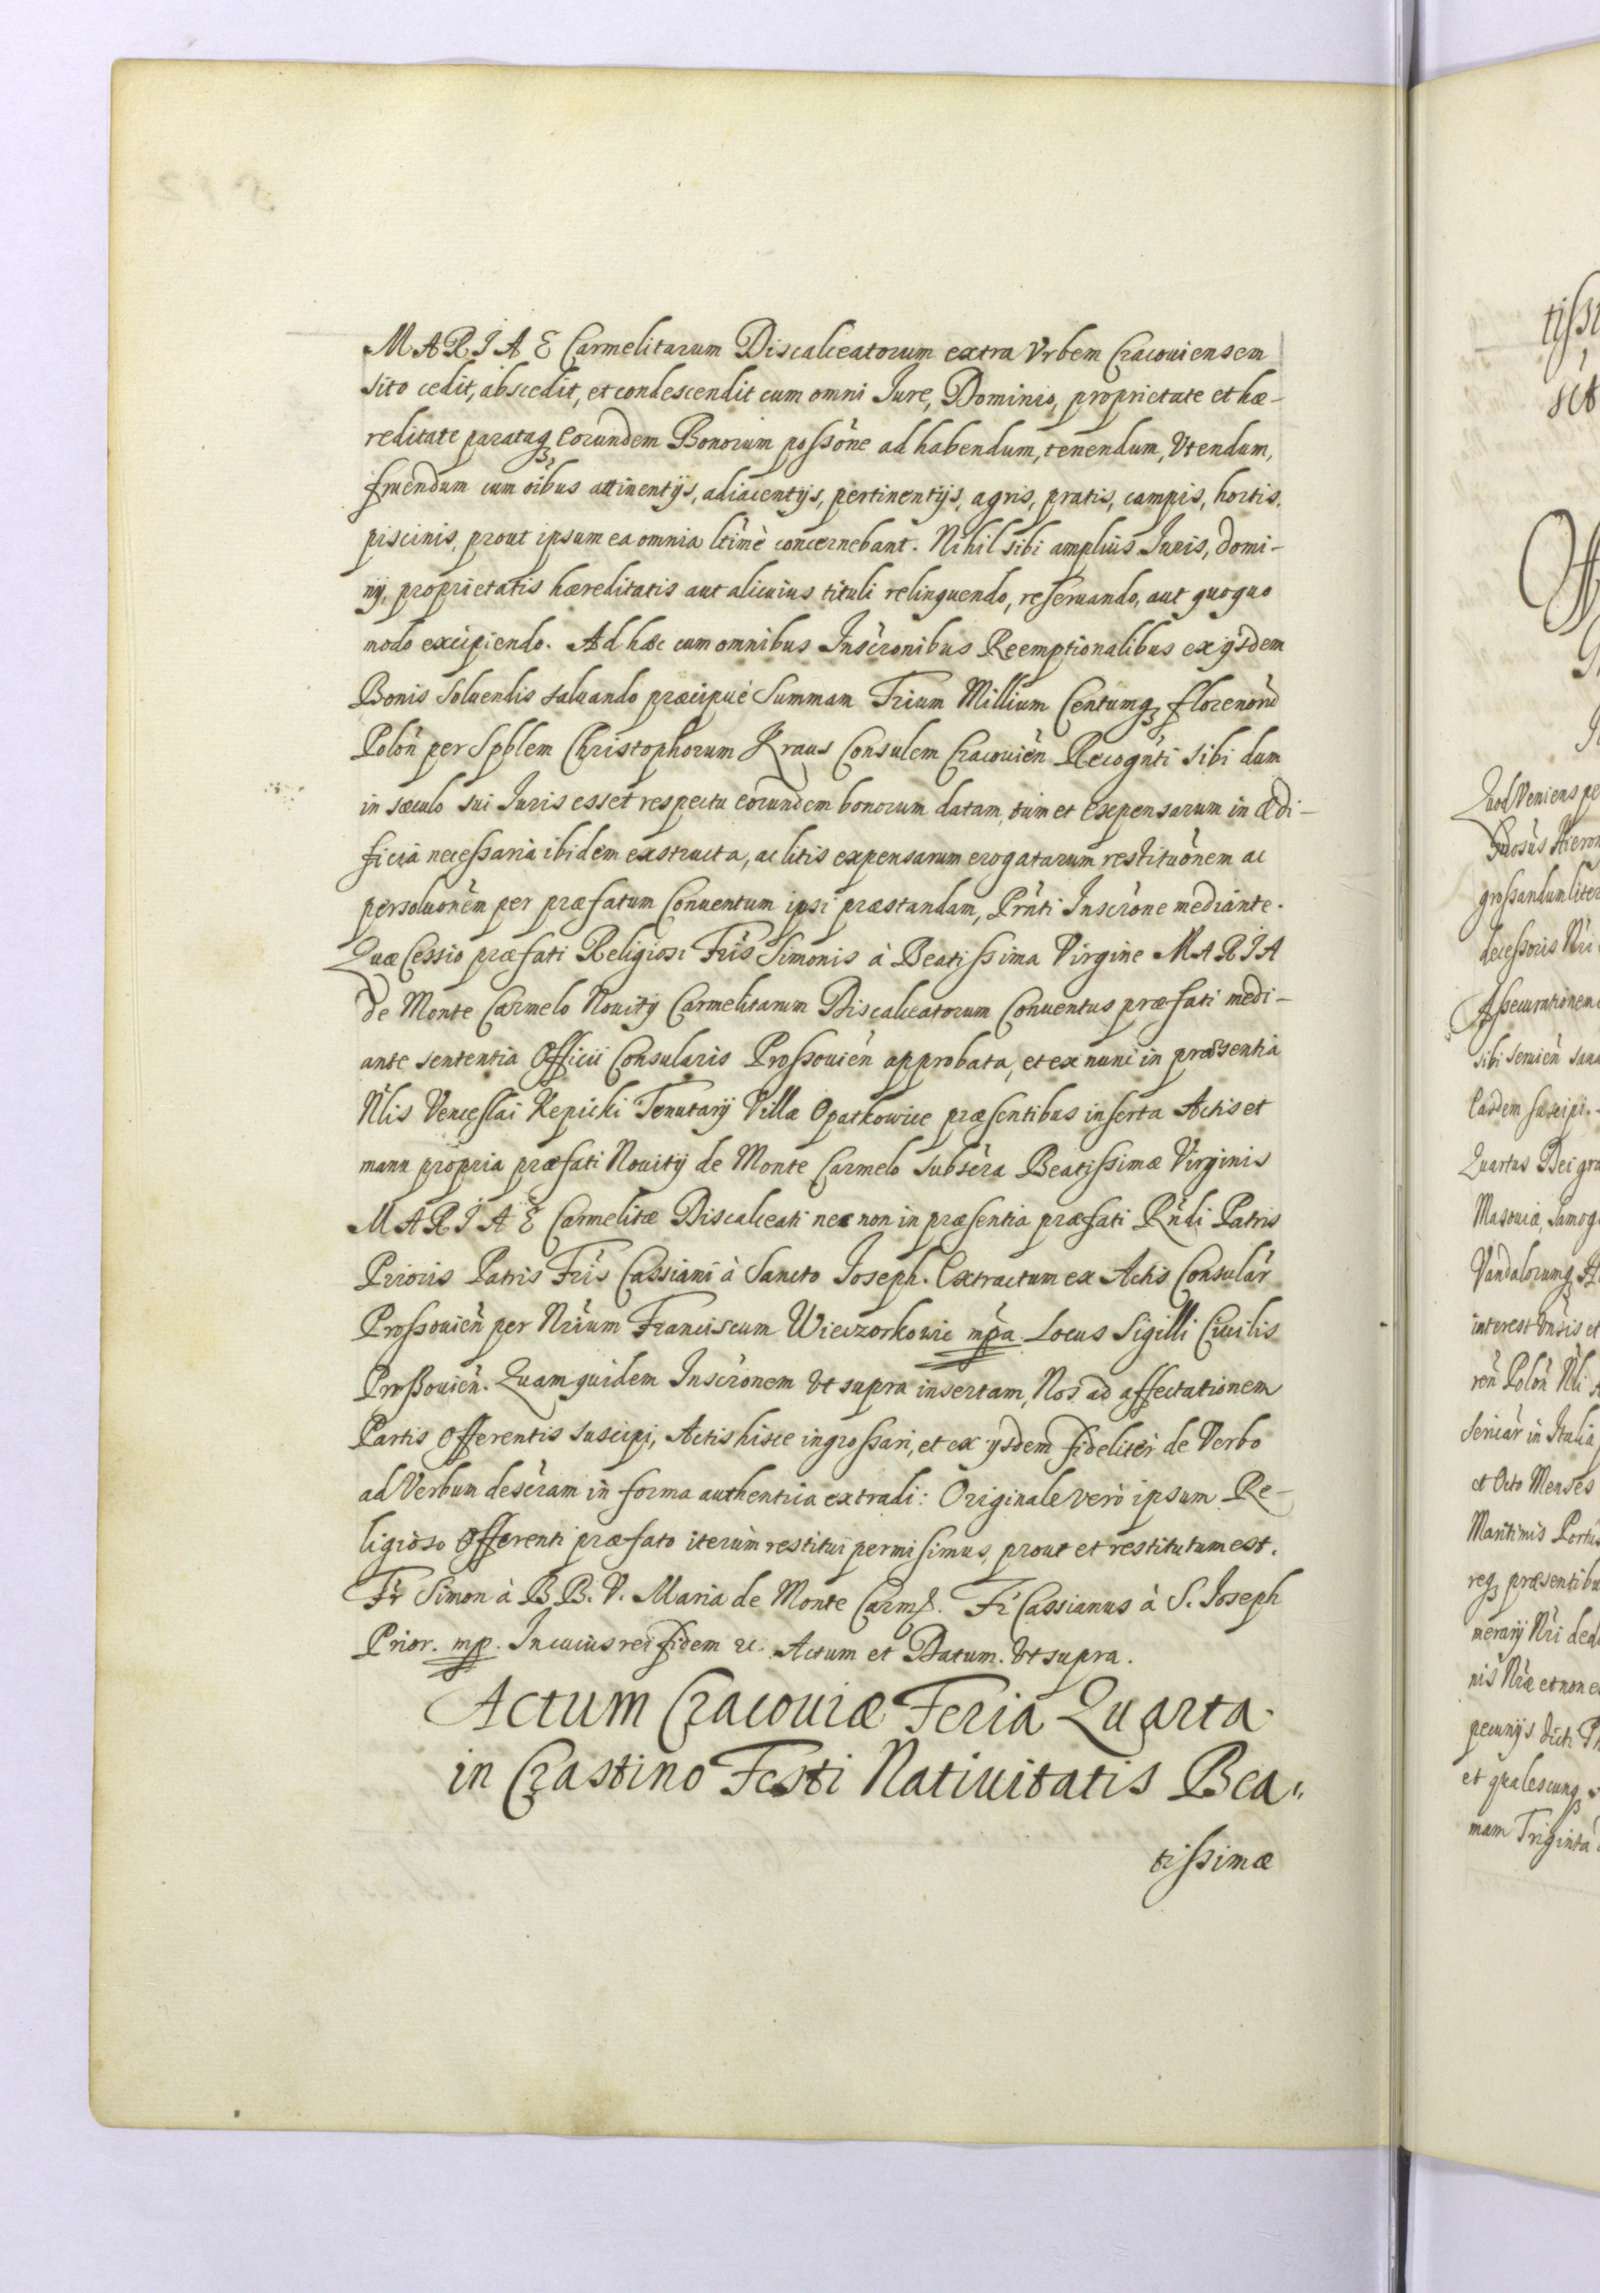 MARIAE Carmelitarum Discalceatorum extra Vrbem Cracouiensem
sito cedit, abscedit, et condescendit cum omni Iure, Dominio, proprietate et hæ-
reditate parataq3 Eorundem Bonorum posśone ad habendum, tenendum, Vtendum,
fruendum cum oibus attinentijs, adiacentijs, pertinentijs, agris, pratis, campis, hortis,
piscinis, prout ipsum ea omnia ltimè concernebant. Nihil sibi amplius Iuris, domi-
nij, proprietatis hæreditatis aut alicuius tituli relinquendo, reseruando, aut quoquo
modo excipiendo. Ad hæc cum omnibus Inscronibus Reemptionalibus ex ijsdem
Bonis soluendis saluando præcipuè Summam Trium Millium Centumq3 florenorũ
Poloñ per Spblem Christophorum Kraus Consulem Cracouieñ Recognti sibi dum
in sæculo sui Iuris esset respectu eorundem bonorum datam, tùm et expensarum in ædi-
ficia necessaria ibidem exstructa, ac litis expensarum erogatarum restitutionem ac
persoluonem per præfatum Conuentum ipsi præstandam, Prnti Inscrone mediante.
Quæ Cessio præfati Religiosi Fris Simonis à Beatissima Virgine MARIA
de Monte Carmelo Nouitij Carmelitarum Discalceatorum Conuentus præfati medi-
ante sententia Officii Consularis Prossouieñ approbata, et ex nunc in præsentia
Nlis Venceslai Kepicki Tenutarij Villæ Opatkowice præsentibus inserta Actis et
manu propria præfati Nouitij de Monte Carmelo subscra Beatissimæ Virginis
MARIAE Carmelitæ Discalceati nec non in præsentia præfati Rndi Patris
Prioris Patris Fris Cassiani à Sancto Joseph. Extractum ex Actis Consular
Prossouieñ per Nrium Franciscum Wieczorkowic mpa Locus Sigilli Ciuilis
Prossouieñ. Quam quidem Inscronem vt supra insertam, Nos ad affectationem
Partis Offerentis suscipi, Actis hisce ingrossari, et ex ijsdem fideliter de Verbo
ad Verbum descram in forma authentica extradi: Originale verò ipsum Re-
ligioso Offerenti præfato iterum restitui permisimus, prout et restitutum est.
Fr Simon à B B. V. Maria de Monte Carml. Fr Cassianus à S. Joseph
Prior. mp. In cuius rei fidem &c. Actum et Datum. vt supra.
Actum Cracouiæ Feria Quarta
in Crastino Festi Natiuitatis Bea-
tissimæ